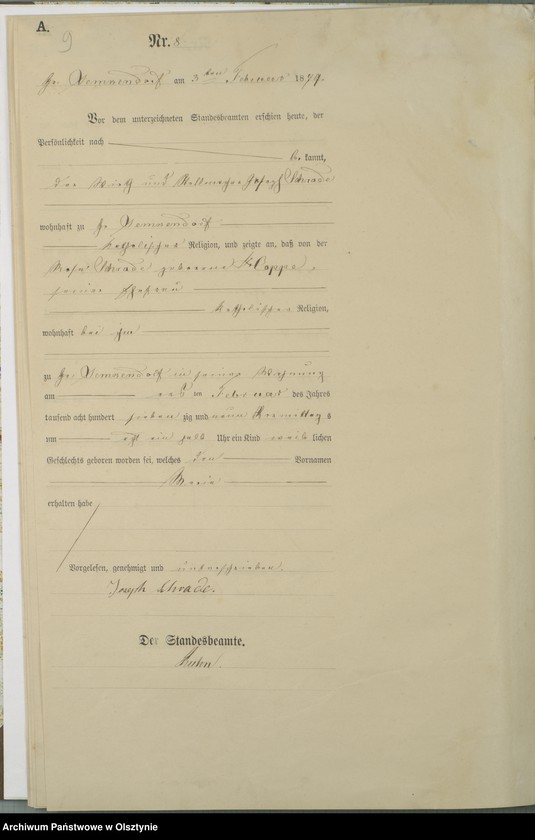 A.
9
Nr. 8
Gr. am 3 ten Februar 1879.
Vor dem unterzeichneten Standesbeamten erschien heute, der
Persönlichkeit nach
be kannt,
der Wirth und Joseph Schrade
wohnhaft zu Gr.
katholischer Religion, und zeigte an, daß von der
Rosa Schrade geborene
seiner Ehefrau
katholischer Religion,
wohnhaft bei ihm
zu Gr. in seiner Wohnung
am ten Februar des Jahres
tausend acht hundert sieben zig und neun Vormittag s
um acht ein halb Uhr ein Kind weib lichen
Geschlechts geboren worden sei, welches den Vornamen
Maria
erhalten habe
Vorgelesen, genehmigt und unterschrieben.
Joseph Schrade.
Der Standesbeamte.
Archiwum Państwowe w Olsztynie